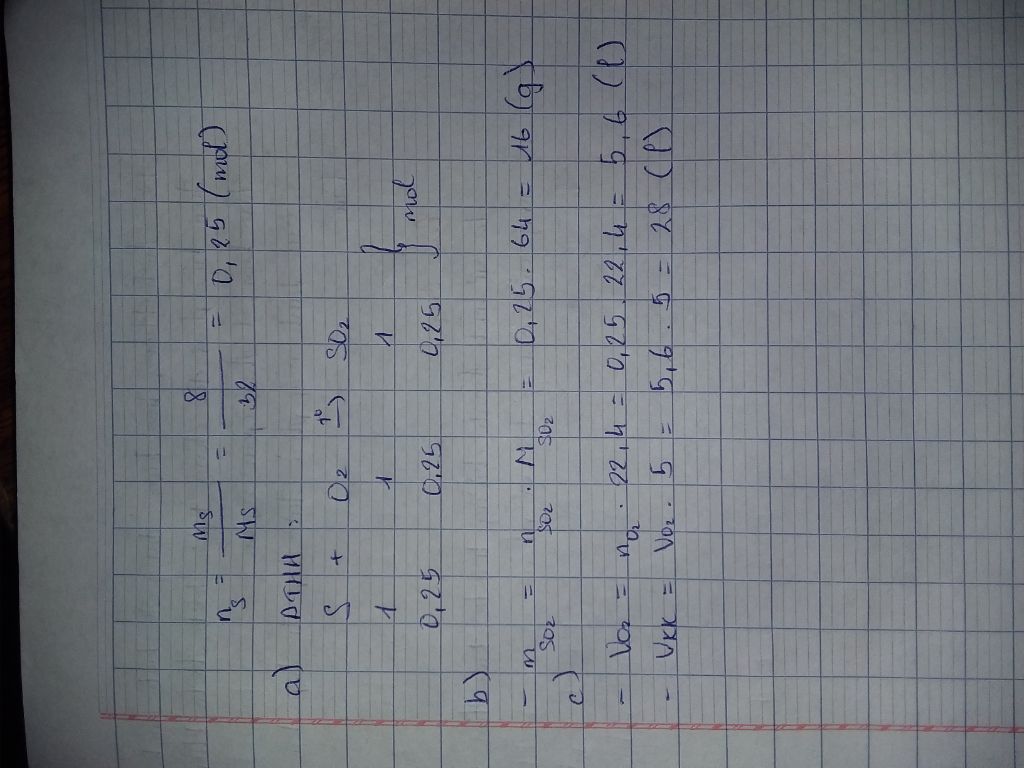 n_S = m_S / M_S = 8 / 32 = 0,25 (mol)
a) PTHH :
S + O₂ →(t°) SO₂
1 1 1
0,25 0,25 0,25 } mol
b)
- m_SO₂ = n_SO₂ . M_SO₂ = 0,25 . 64 = 16 (g)
c)
- V_O₂ = n_O₂ . 22,4 = 0,25 . 22,4 = 5,6 (l)
- V_KK = V_O₂ . 5 = 5,6 . 5 = 28 (l)